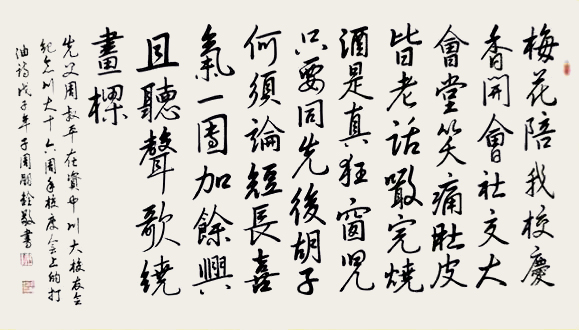 梅花陪我校慶
香開會社交大
會堂笑痛肚皮
皆老話完燒
酒是真狂窗兒
只要同先後胡子
何須論短長喜
氣一團加餘興
且聽聲歌繞
畫樑
先父周叔平在資中川大校友会
纪念川大十六周年校庆会上的打
油詩戊子年子周嗣銓敬書